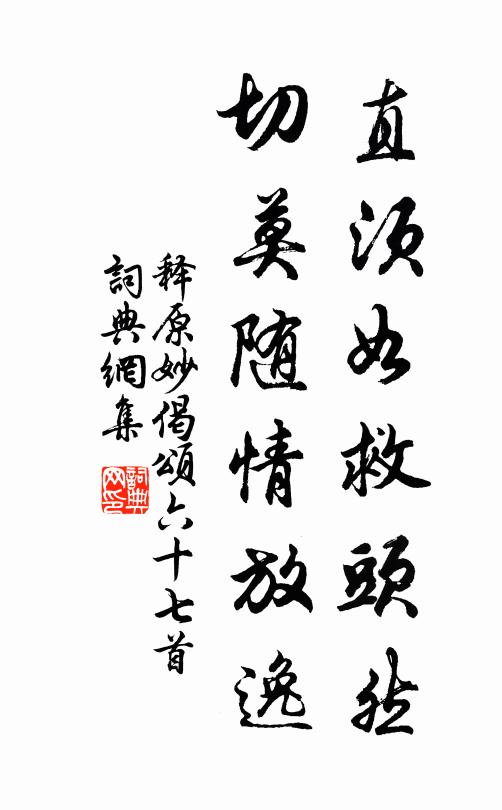 直须如救頭然
切莫随情放逸
释原妙偈頌六十七首
詞典網集
詞典网印